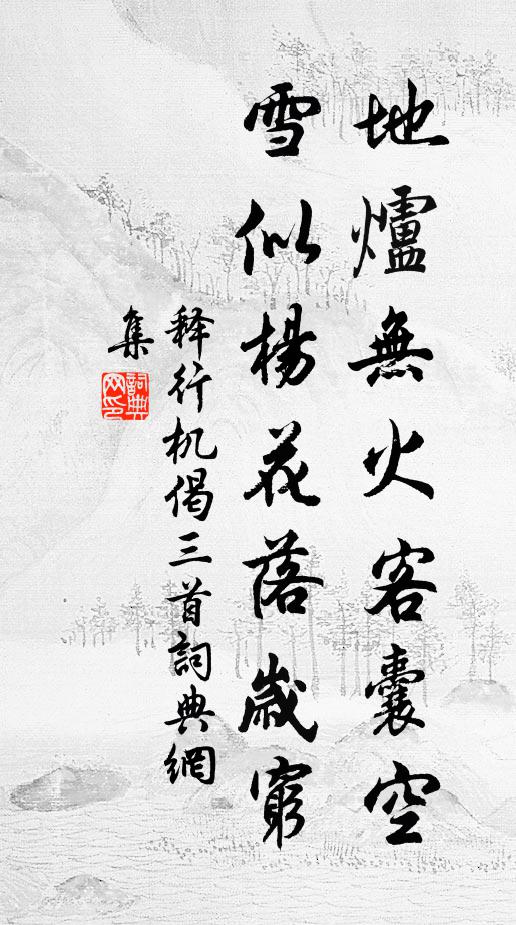 地爐無火客囊空
雪似楊花落歲窮
释行机偈三首詞典網
集
詞典
网印